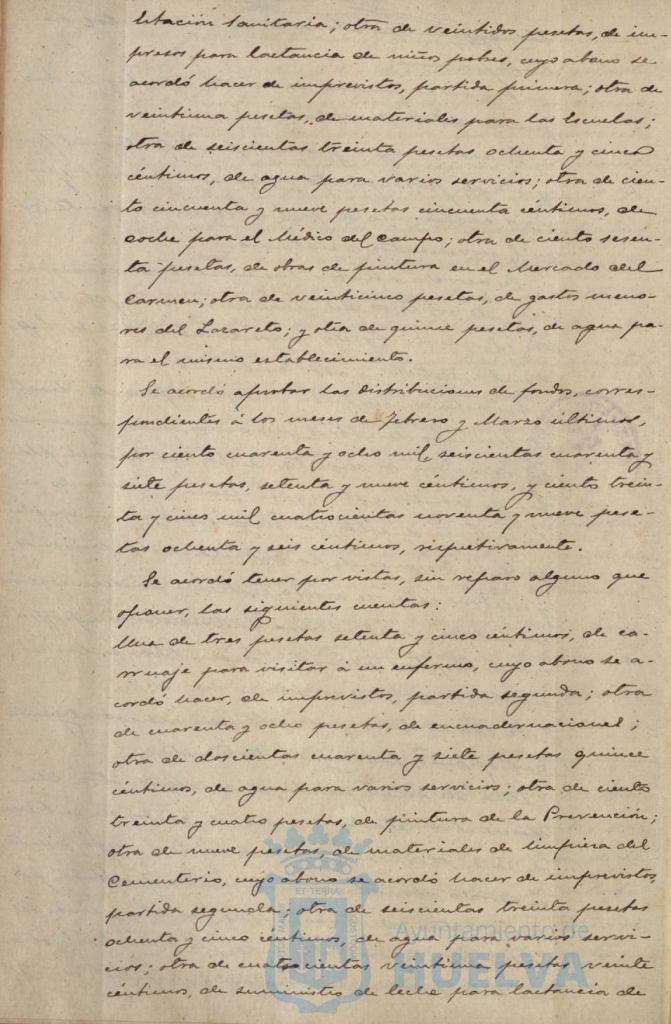 litación sanitaria; otra de veintidos pesetas, de im-
presos para lactancia de niños pobres, cuyo abono se
acordó hacer de imprevistos, partida primera; otra de
veintiuna pesetas, de materiales para las Escuelas;
otra de seiscientas treinta pesetas ochenta y cinco
céntimos, de agua para varios servicios; otra de cien-
to cincuenta y nueve pesetas cincuenta céntimos, de
coche para el Médico del Campo; otra de ciento sesen-
ta pesetas, de obras de pintura en el Mercado del
Carmen; otra de veinticinco pesetas, de gastos meno-
res del Lazareto; y otra de quince pesetas, de agua pa-
ra el mismo establecimiento.
Se acordó aprobar las distribuciones de fondos, corres-
pondientes á los meses de Febrero y Marzo últimos,
por ciento cuarenta y ocho mil, seiscientas cuarenta y
siete pesetas, setenta y nueve céntimos, y ciento trein-
ta y cinco mil cuatrocientas noventa y nueve pese-
tas ochenta y seis céntimos, respectivamente.
Se acordó tener por vistas, sin reparo alguno que
oponer, las siguientes cuentas:
Una de tres pesetas setenta y cinco céntimos, de ca-
rruaje para visitar á un enfermo, cuyo abono se a-
cordó hacer, de imprevistos, partida segunda; otra
de cuarenta y ocho pesetas, de encuadernaciones;
otra de doscientas cuarenta y siete pesetas quince
céntimos, de agua para varios servicios; otra de ciento
treinta y cuatro pesetas, de pintura de la Prevención;
otra de nueve pesetas, de materiales de limpieza del
Cementerio, cuyo abono se acordó hacer de imprevistos,
partida segunda; otra de seiscientas treinta pesetas
ochenta y cinco céntimos, de agua para varios servi-
cios; otra de cuatrocientas veintiuna pesetas veinte
céntimos, de suministro de leche para lactancia de
ET TERRÆ
Ayuntamiento de
HUELVA